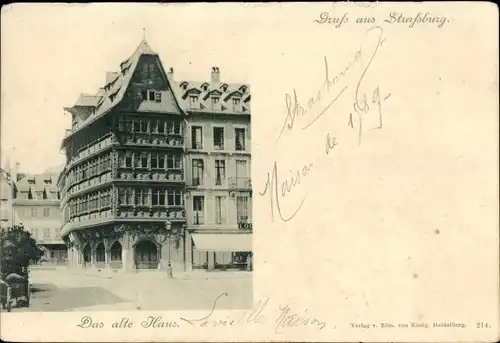 Gruß aus Straßburg.
Strasbourg
Maison de 1589
Das alte Haus. La vieille Maison
Verlag v. Edm. von König, Heidelberg. 214.